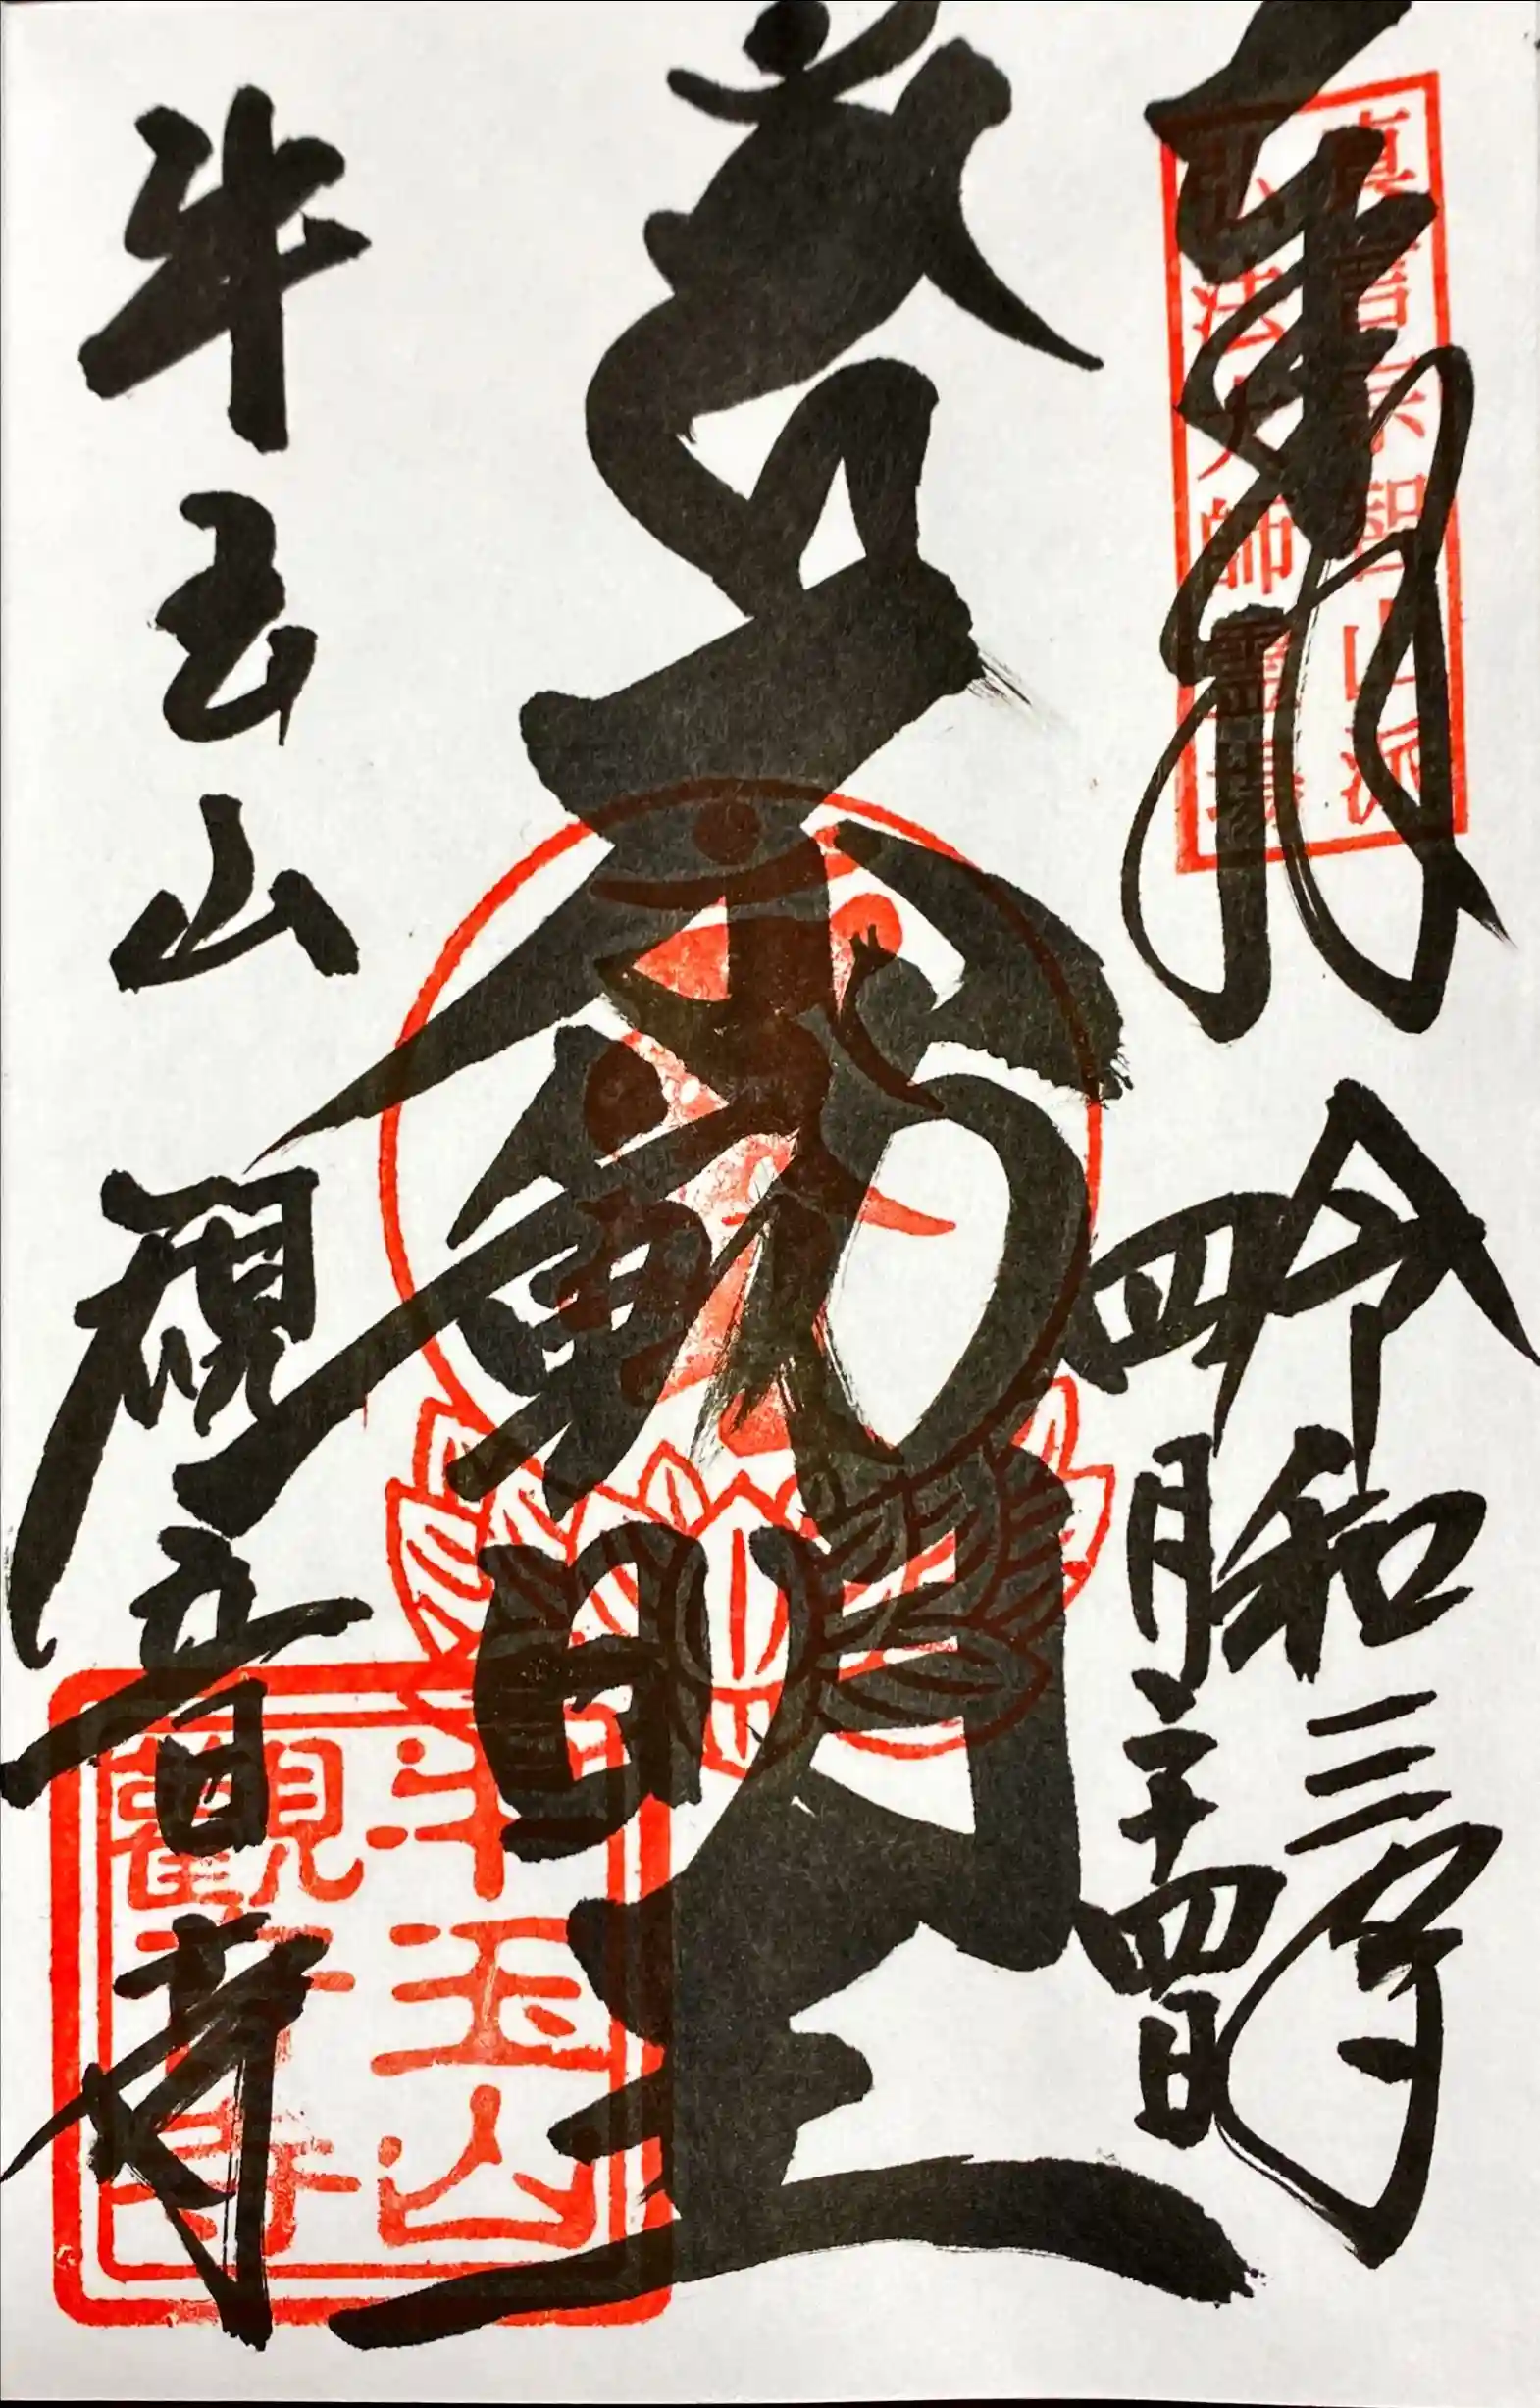 奉拝
令和三年
四月二十四日
不動明王
牛玉山
観音寺
真言宗智山派
弘法大師霊場
牛玉山
観音寺